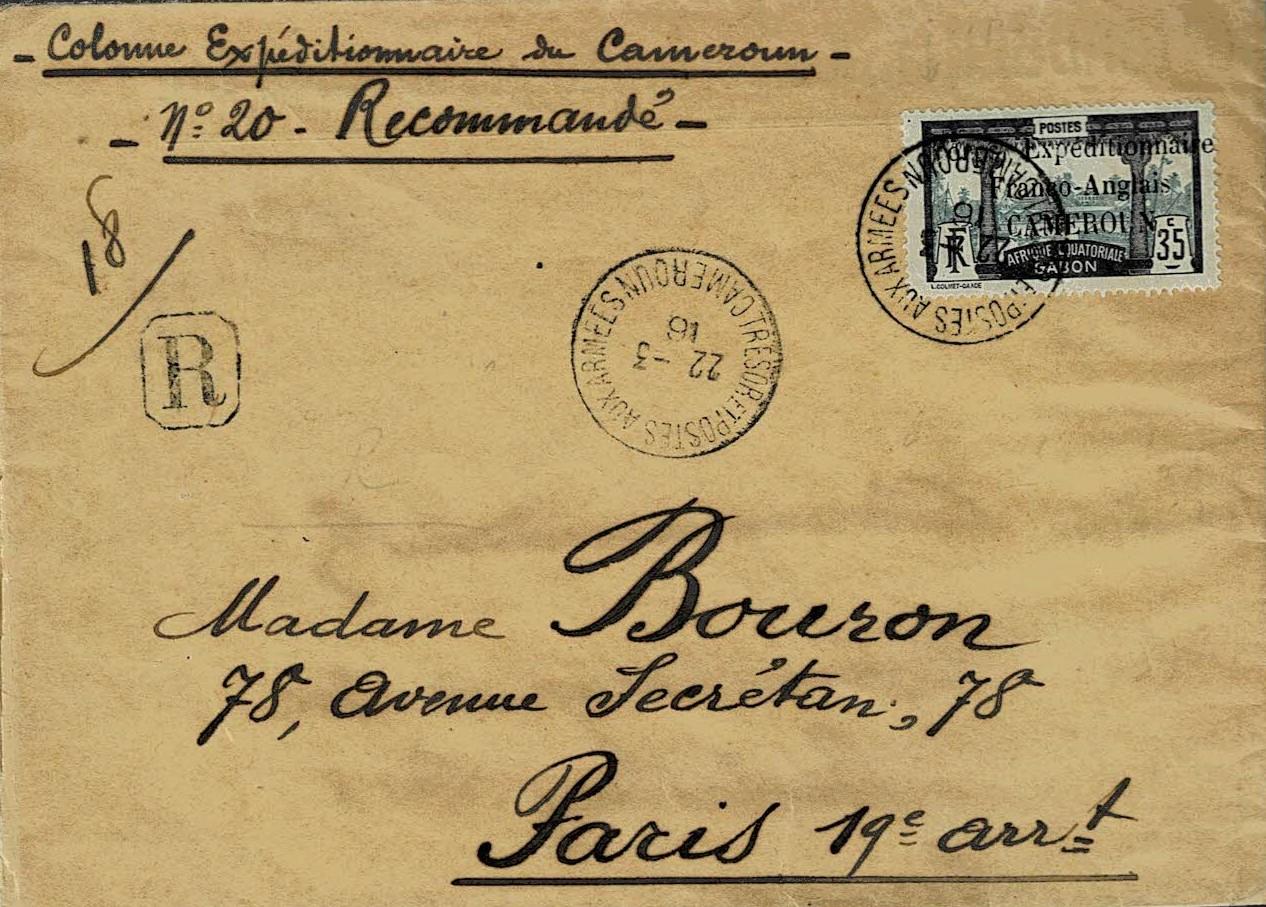 - Colonne Expéditionnaire du Cameroun -
- Nº 20 - Recommandé -
18
R
POSTES
Expéditionnaire
Franco-Anglais
CAMEROUN
RF
35 c
AFRIQUE EQUATORIALE
GABON
L.COLMET-DAAGE
TRESOR ET POSTES AUX ARMEES CAMEROUN
22 - 3
16
TRESOR ET POSTES AUX ARMEES CAMEROUN
22 - 3
16
Madame Bouron
78, Avenue Secrétan, 78
Paris 19e arrt